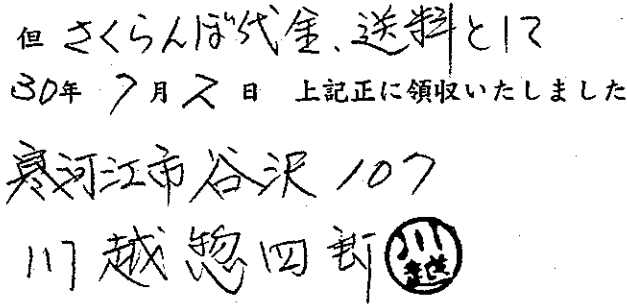 但 さくらんぼ代金、送料として
30年 7月 2日 上記正に領収いたしました
寒河江市谷沢107
川越惣四郎 川越